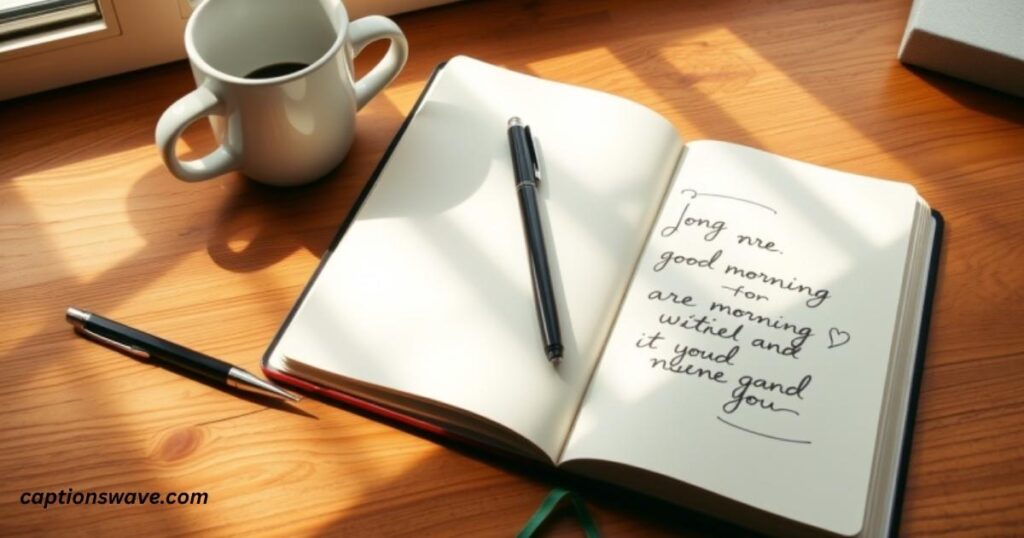 Jong nre.
good morning
for
are morning
witriel and
it youd
nuene gand
you
captionswave.com